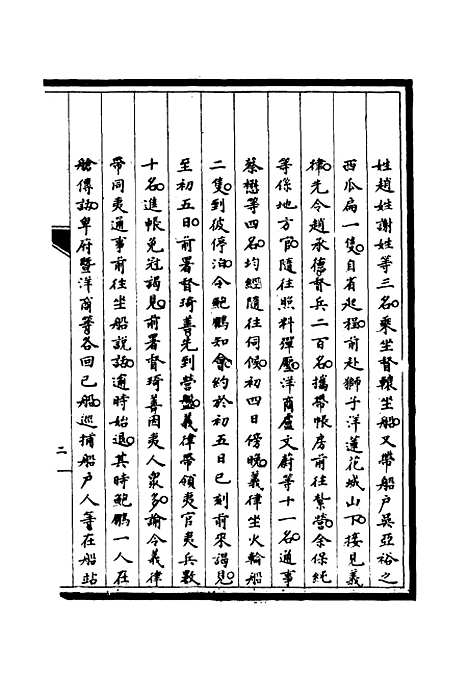 姓趙姓謝姓等三名乘坐督轅坐船又帶船户吳亞裕之
西瓜扁一隻自省起程前赴獅子洋蓮花城山下接見義
律先令趙承德督兵二百名攜帶帳房前往紮營余保純
等係地方官隨往照料彈壓洋商盧文蔚等十一名通事
蔡懋等四名均經隨往伺候初四日傍晚義律坐火輪船
二隻到彼停泊令鮑鵬知會約於初五日巳刻前來謁見
至初五日前署督琦善先到營盤義律帶領夷官夷兵數
十名進帳免冠謁見前署督琦善因夷人眾多諭令義律
帶同夷通事前往坐船說話逾時始退其時鮑鵬一人在
艙傳話卑府暨洋商等各回己船巡捕船户人等在船站
二